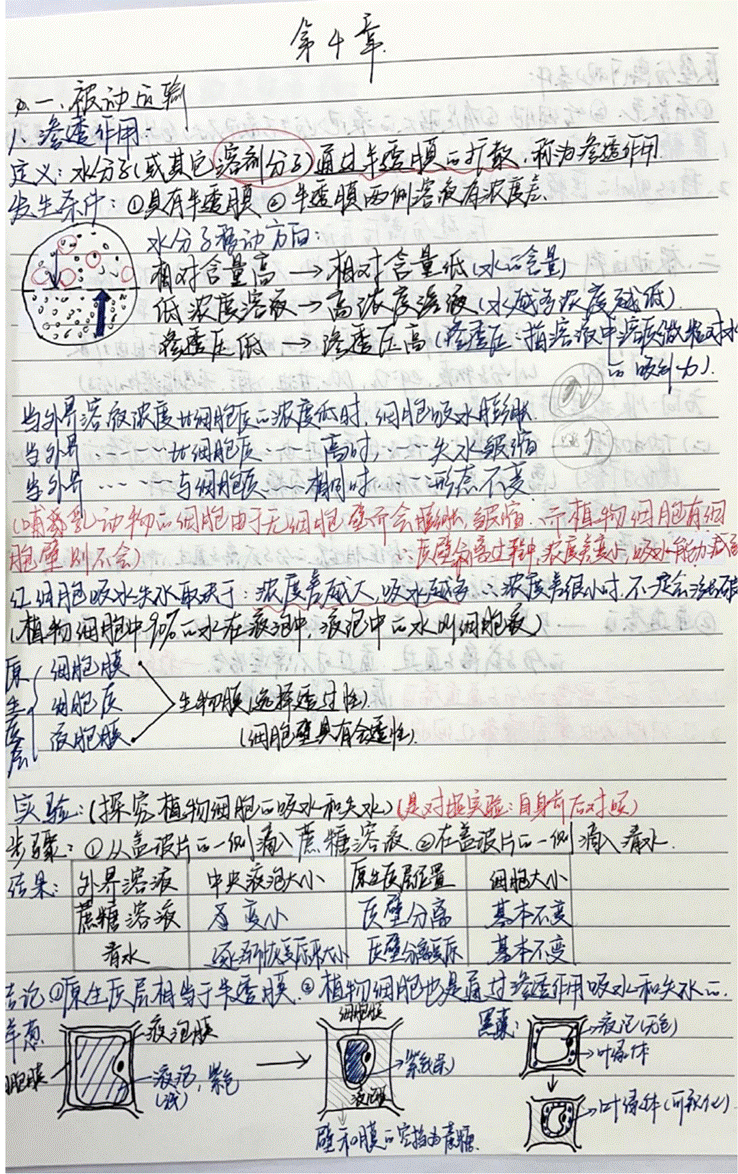 第4章
一、被动运输
1、渗透作用:
定义:水分子(或其它溶剂分子)通过半透膜的扩散,称为渗透作用
发生条件:①具有半透膜 ②半透膜两侧溶液有浓度差.
水分子移动方向:
相对含量高→相对含量低(水的含量)
低浓度溶液→高浓度溶液(水越多浓度越低)
渗透压低→渗透压高(渗透压:指溶液中溶质微粒对水
的吸引力).
当外界溶液浓度比细胞质的浓度低时,细胞吸水膨胀
当外界……比细胞质……高时,……失水皱缩
当外界……与细胞质……相同时……形态不变
(哺乳动物的细胞由于无细胞壁而会膨胀、皱缩.而植物细胞有细
胞壁则不会)
质壁分离过程中,浓度差变小,吸水能力
红细胞吸水失水取决于:浓度差越大,吸水越多∴浓度差很小时,不一定会涨破
(植物细胞中90%的水在液泡中,液泡中的水叫细胞液)
原生质层 细胞膜
细胞质
液胞膜
生物膜(选择透过性)
(细胞壁具有全透性).
实验:(探究植物细胞的吸水和失水)(是对照实验:自身前后对照)
步骤:①从盖玻片的一侧滴入蔗糖溶液.②在盖玻片的一侧滴入清水.
结果: 外界溶液 中央液泡大小 原生质层位置 细胞大小
蔗糖溶液 变小 质壁分离 基本不变
清水 逐渐恢复原来大小 质壁分离复原 基本不变
结论①原生质层相当于半透膜.②植物细胞也是通过渗透作用吸水和失水的.
洋葱
液泡膜
细胞膜
液泡,紫色
(浅)
细胞膜
紫色(深)
液泡膜
壁和膜的空挡由蔗糖
黑藻:
液泡(无色)
叶绿体
叶绿体(